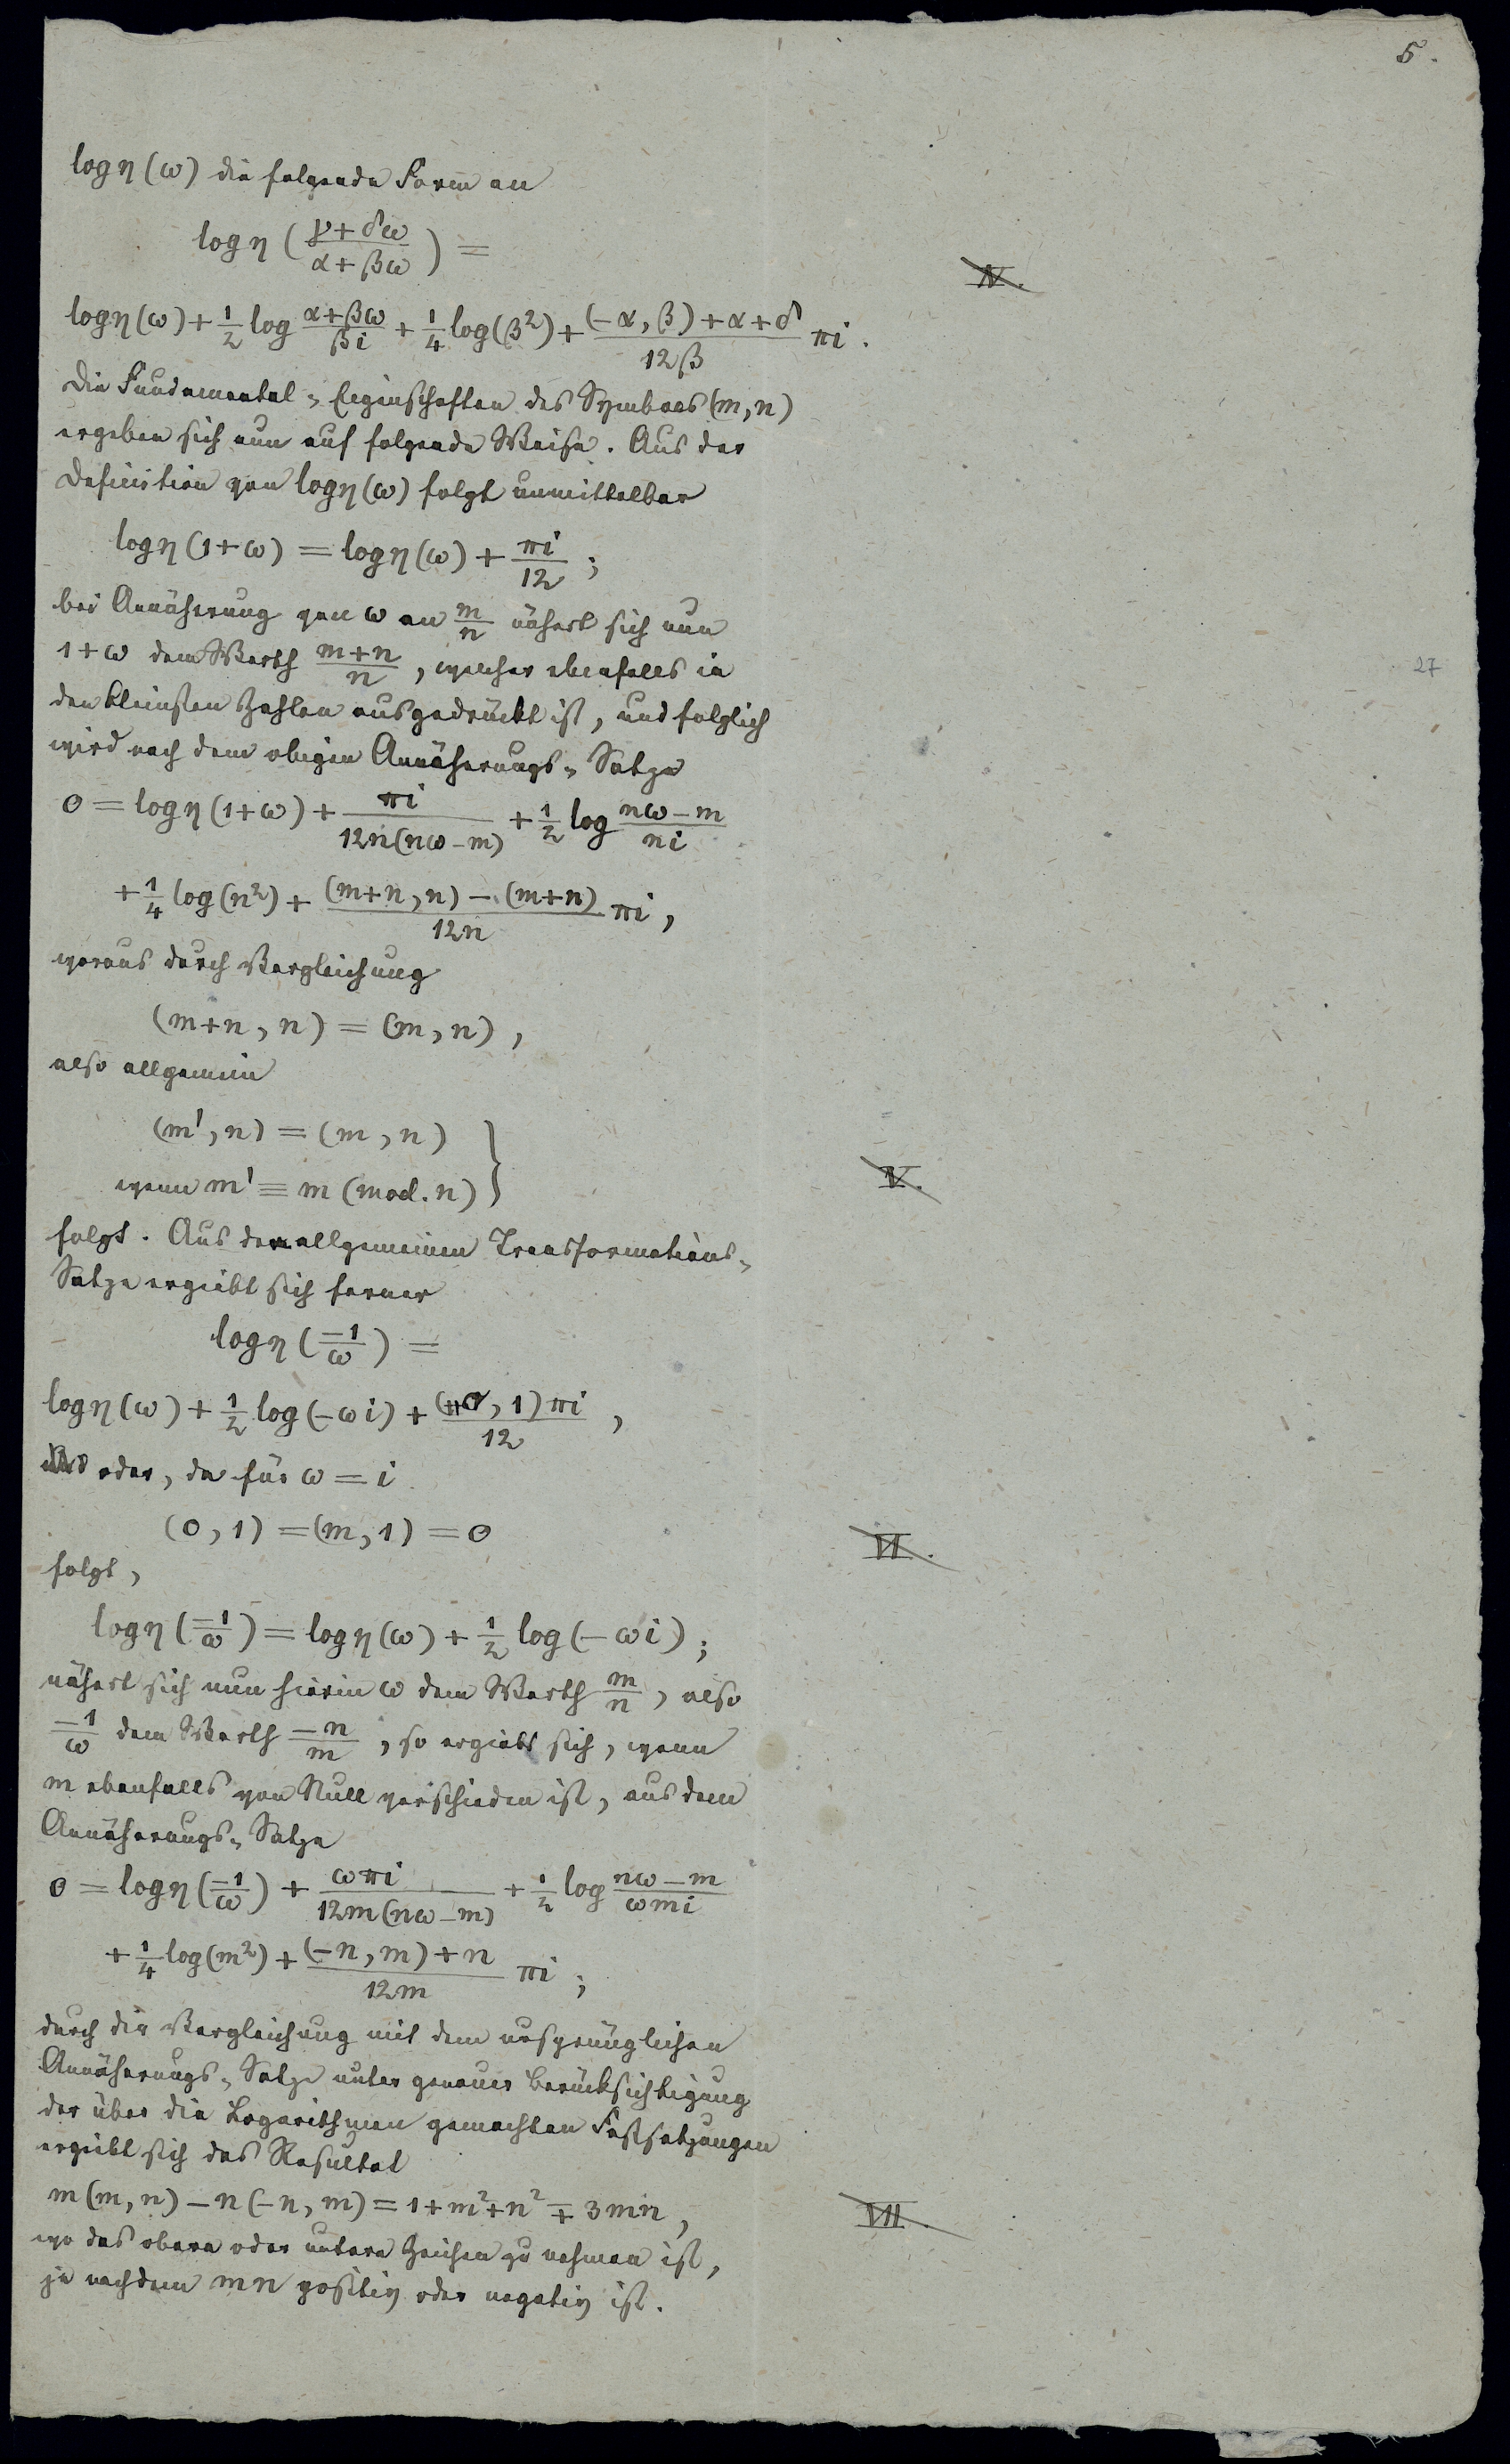 5.
log η (ω) die folgende Form an
log η ((γ + δω)/(α + βω)) =
IV.
log η (ω) + 1/2 log (α + βω)/(βi) + 1/4 log (β²) + ((−α, β) + α + δ)/(12β) πi.
Die Fundamental-Eigenschaften des Symboles (m, n)
ergeben sich nun auf folgende Weise. Aus der
Definition von log η (ω) folgt unmittelbar
log η (1 + ω) = log η (ω) + πi/12 ;
bei Annäherung von ω an m/n nähert sich nun
1 + ω dem Werth (m + n)/n , welcher ebenfalls in
27
den kleinsten Zahlen ausgedrückt ist, und folglich
wird nach dem obigen Annäherungs-Satze
0 = log η (1 + ω) + πi/(12n(nω − m)) + 1/2 log (nω − m)/(ni)
+ 1/4 log (n²) + ((m + n, n) − (m + n))/(12n) πi ,
woraus durch Vergleichung
(m + n, n) = (m, n) ,
also allgemein
(m', n) = (m, n) }
wenn m' ≡ m (mod. n)
V.
folgt. Aus dem allgemeinen Transformations-
Satze ergiebt sich ferner
log η (−1/ω) =
log η (ω) + 1/2 log (−ωi) + ((0, 1) πi)/12 ,
oder, da für ω = i
(0, 1) = (m, 1) = 0
VI.
folgt,
log η (−1/ω) = log η (ω) + 1/2 log (−ωi) ;
nähert sich nun hierin ω dem Werth m/n , also
−1/ω dem Werth −n/m , so ergiebt sich, wenn
m ebenfalls von Null verschieden ist, aus dem
Annäherungs-Satze
0 = log η (−1/ω) + ωπi/(12m(nω − m)) + 1/2 log (nω − m)/(ωmi)
+ 1/4 log (m²) + ((−n, m) + n)/(12m) πi ;
durch die Vergleichung mit dem ursprünglichen
Annäherungs-Satze unter genauer Berücksichtigung
der über die Logarithmen gemachten Festsetzungen
ergiebt sich das Resultat
m (m, n) − n (−n, m) = 1 + m² + n² ∓ 3mn ,
VII.
wo das obere oder untere Zeichen zu nehmen ist,
je nachdem mn positiv oder negativ ist.